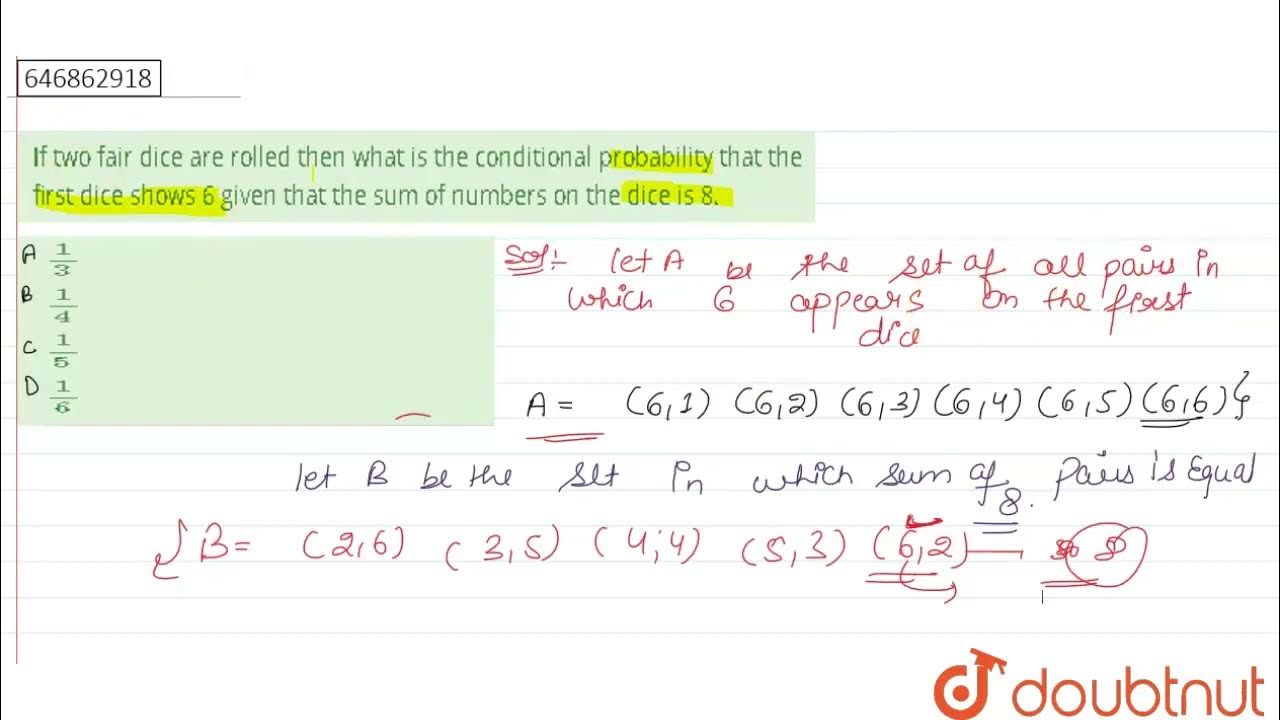 646862918
If two fair dice are rolled then what is the conditional probability that the
first dice shows 6 given that the sum of numbers on the dice is 8.
A 1/3
B 1/4
C 1/5
D 1/6
Sol:- let A be the set of all pairs in
which 6 appears on the first
dice
A = (6,1) (6,2) (6,3) (6,4) (6,5) (6,6)}
let B be the set in which sum of pairs is Equal
8.
B = (2,6) (3,5) (4,4) (5,3) (6,2)
doubtnut